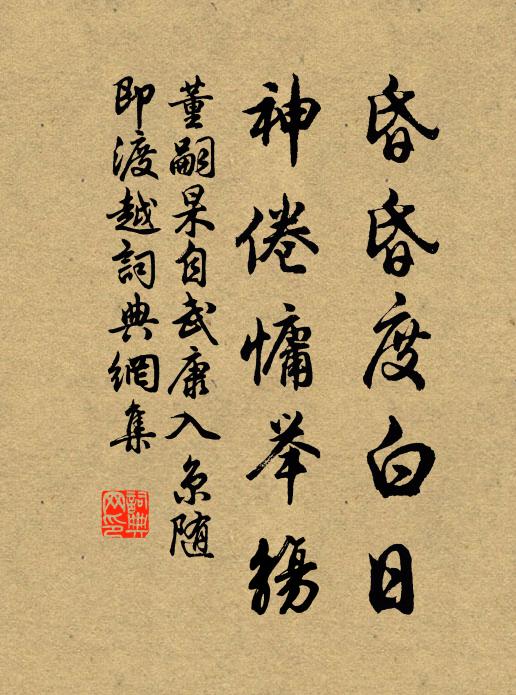 昏昏度白日
神倦慵举觞
董嗣杲自武康入京随
即渡越詞典網集
詞典网印